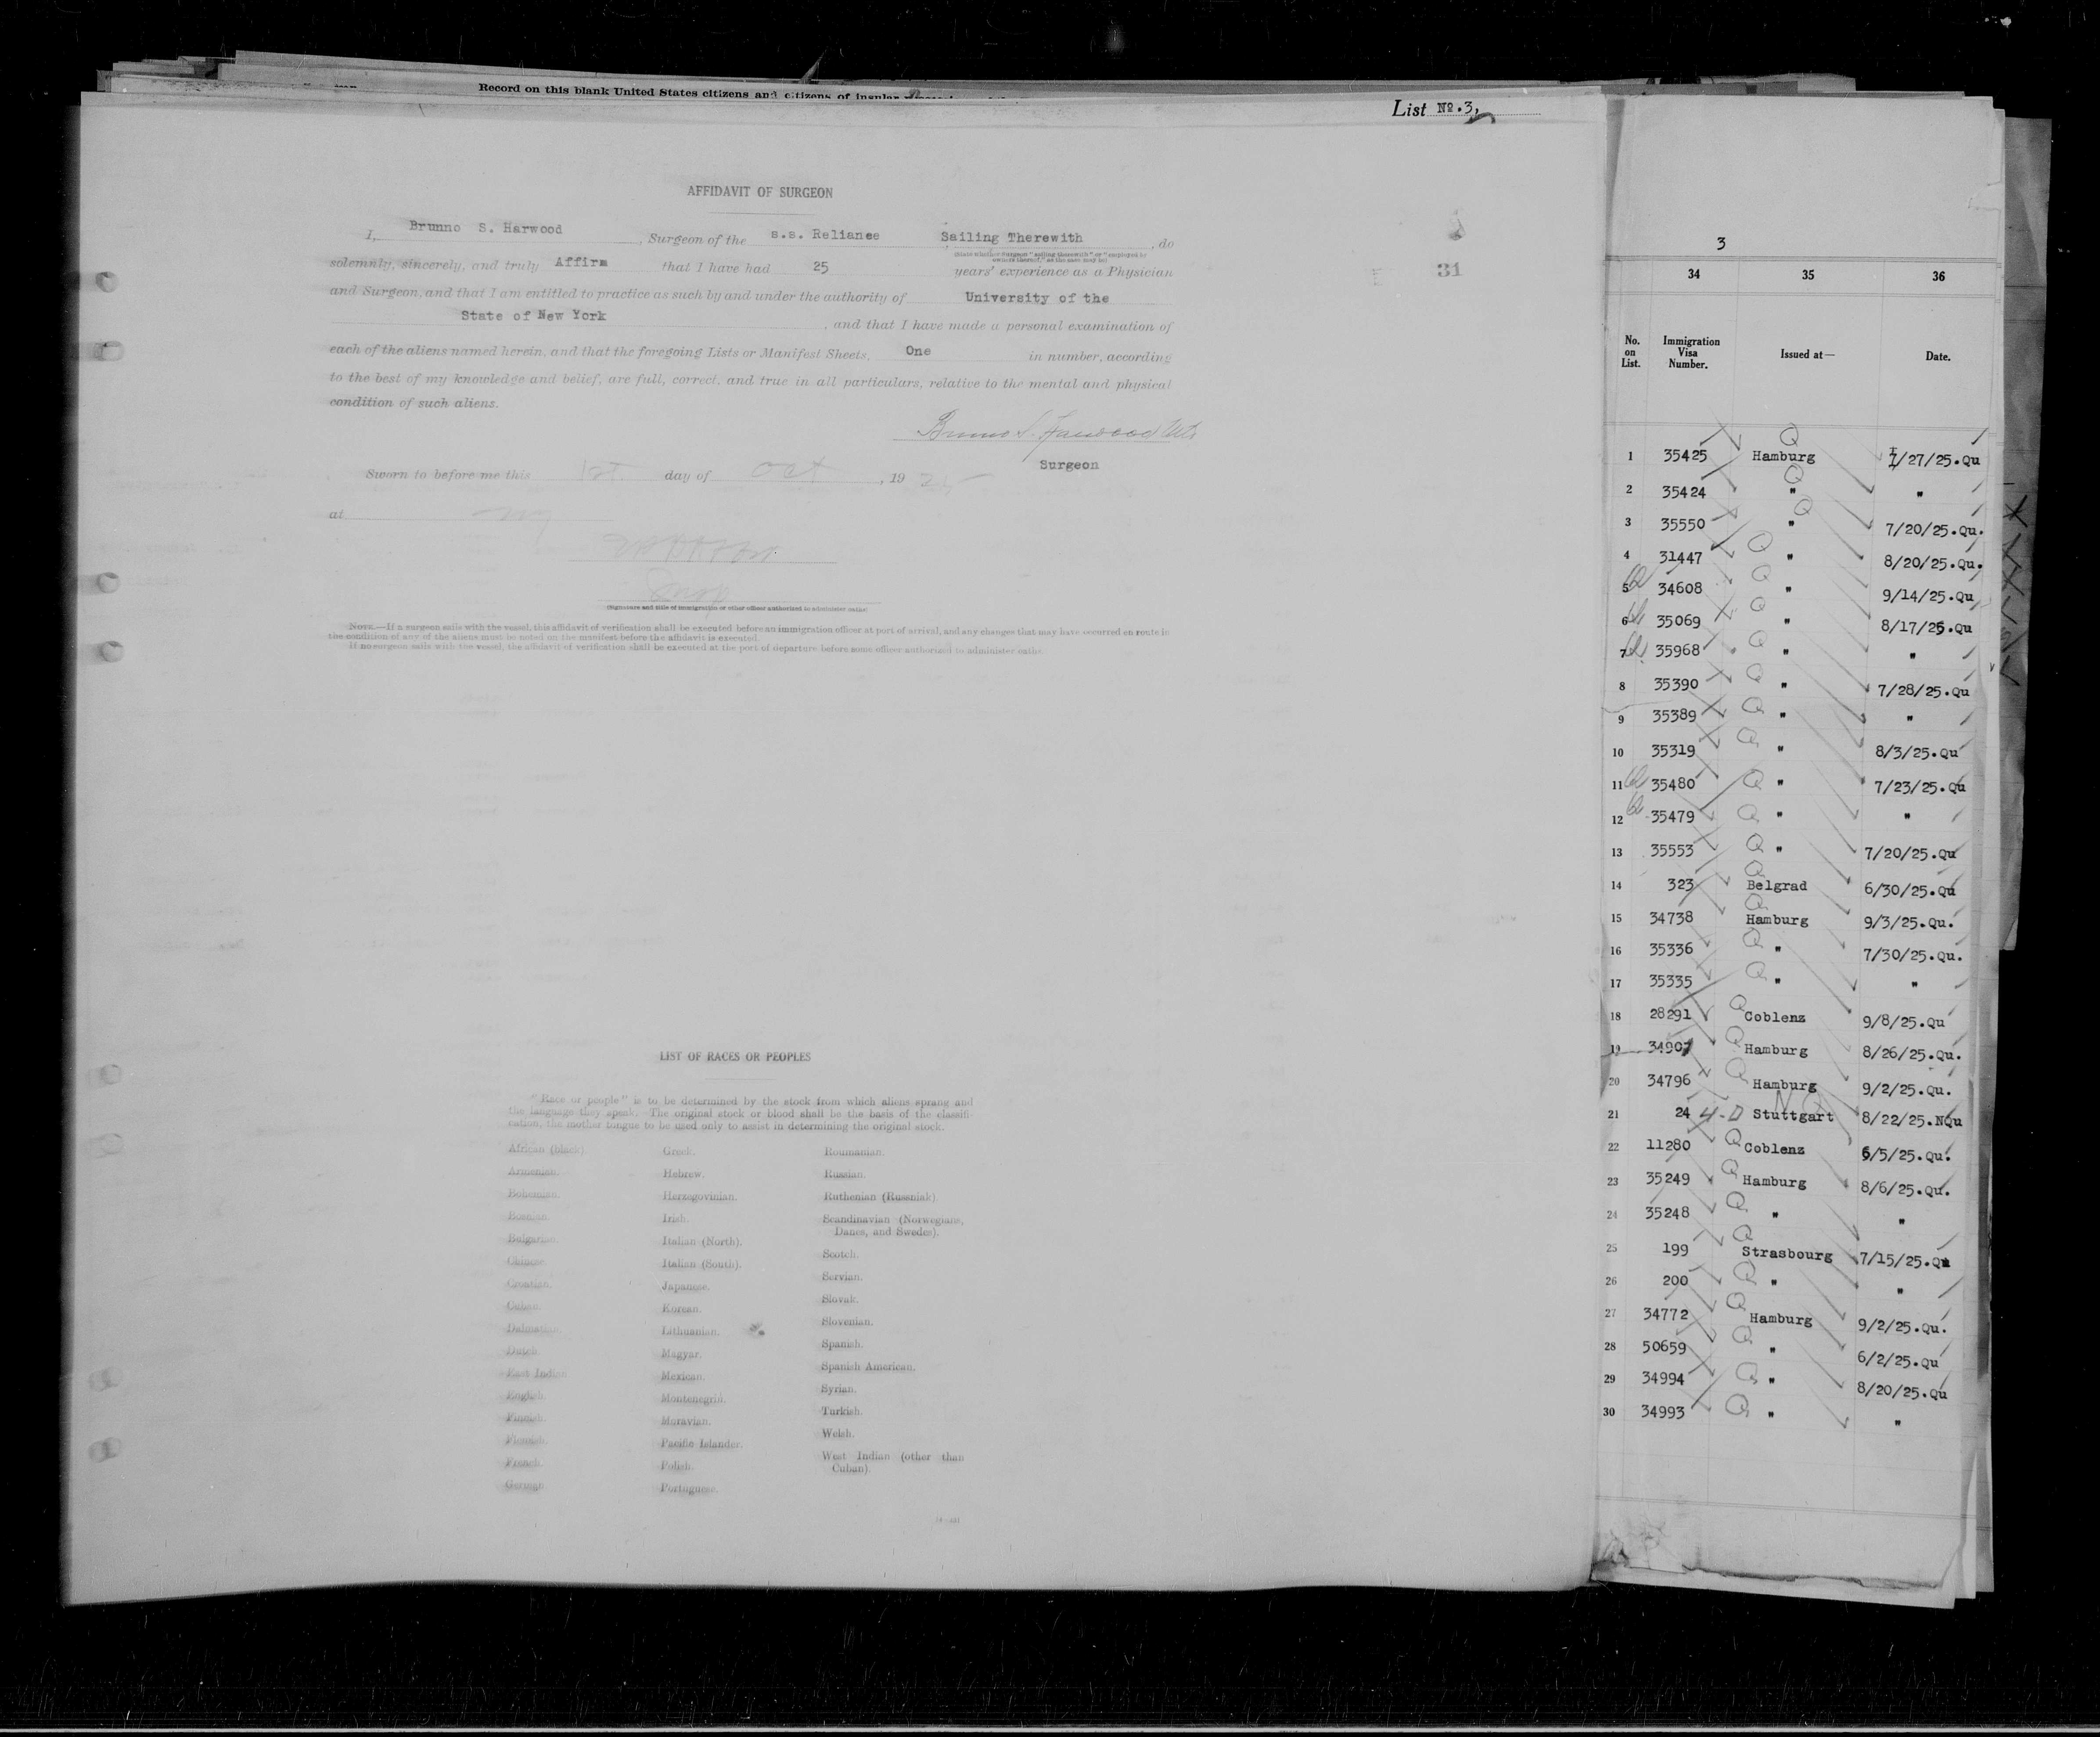 Record on this blank United States citizens and citizens of insular
List No. 3,
AFFIDAVIT OF SURGEON
I, Brunno S. Harwood, Surgeon of the s.s. Reliance Sailing Therewith, do
(State whether Surgeon "sailing therewith" or "employed by
owners thereof," as the case may be)
solemnly, sincerely, and truly Affirm that I have had 25 years' experience as a Physician
31
and Surgeon, and that I am entitled to practice as such by and under the authority of University of the
State of New York, and that I have made a personal examination of
each of the aliens named herein, and that the foregoing Lists or Manifest Sheets, One in number, according
to the best of my knowledge and belief, are full, correct, and true in all particulars, relative to the mental and physical
condition of such aliens.
Surgeon
Sworn to before me this 1st day of Oct, 1925
at
(Signature and title of immigration or other officer authorized to administer oaths)
NOTE.—If a surgeon sails with the vessel, this affidavit of verification shall be executed before an immigration officer at port of arrival, and any changes that may have occurred en route in
the condition of any of the aliens must be noted on the manifest before the affidavit is executed.
If no surgeon sails with the vessel, the affidavit of verification shall be executed at the port of departure before some officer authorized to administer oaths.
LIST OF RACES OR PEOPLES
"Race or people" is to be determined by the stock from which aliens sprang and
the language they speak. The original stock or blood shall be the basis of the classifi-
cation, the mother tongue to be used only to assist in determining the original stock.
African (black).
Armenian.
Bohemian.
Bosnian.
Bulgarian.
Chinese.
Croatian.
Cuban.
Dalmatian.
Dutch.
East Indian.
English.
Finnish.
Flemish.
French.
German.
Greek.
Hebrew.
Herzegovinian.
Irish.
Italian (North).
Italian (South).
Japanese.
Korean.
Lithuanian.
Magyar.
Mexican.
Montenegrin.
Moravian.
Pacific Islander.
Polish.
Portuguese.
Roumanian.
Russian.
Ruthenian (Russniak).
Scandinavian (Norwegians,
Danes, and Swedes).
Scotch.
Servian.
Slovak.
Slovenian.
Spanish.
Spanish American.
Syrian.
Turkish.
Welsh.
West Indian (other than
Cuban).
3
34 35 36
No. on List. Immigration Visa Number. Issued at— Date.
1 35425 Q Hamburg 7/27/25.Qu
2 35424 Q " "
3 35550 Q " 7/20/25.Qu.
4 31447 Q " 8/20/25.Qu.
5 34608 Q " 9/14/25.Qu
6 35069 Q " 8/17/25.Qu
7 35968 Q " "
8 35390 Q " 7/28/25.Qu
9 35389 Q " "
10 35319 Q " 8/3/25.Qu
11 35480 Q " 7/23/25.Qu
12 35479 Q " "
13 35553 Q " 7/20/25.Qu
14 323 Q Belgrad 6/30/25.Qu
15 34738 Q Hamburg 9/3/25.Qu.
16 35336 Q " 7/30/25.Qu.
17 35335 Q " "
18 28291 Q Coblenz 9/8/25.Qu
19 34907 Q Hamburg 8/26/25.Qu.
20 34796 Q Hamburg 9/2/25.Qu.
21 24 4-D NQ Stuttgart 8/22/25.NQu
22 11280 Q Coblenz 6/5/25.Qu.
23 35249 Q Hamburg 8/6/25.Qu.
24 35248 Q " "
25 199 Q Strasbourg 7/15/25.Qu
26 200 Q " "
27 34772 Q Hamburg 9/2/25.Qu.
28 50659 Q " 6/2/25.Qu
29 34994 Q " 8/20/25.Qu
30 34993 Q " "